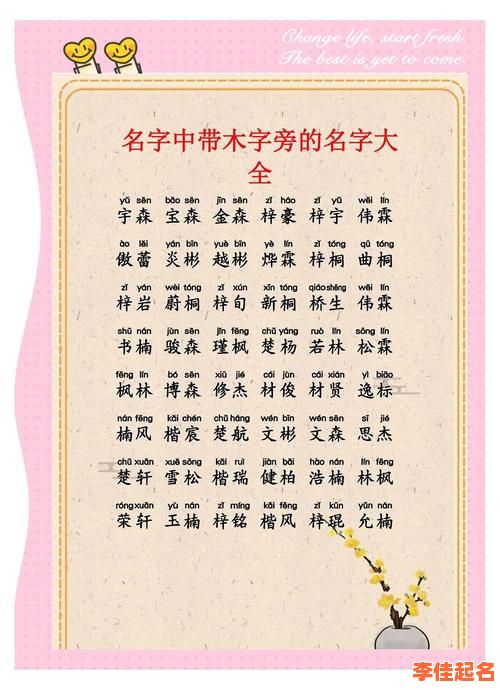 Change life, start fresh
The best is yet to come.
名字中带木字旁的名字大
全
yǔ sēn bǎo sēn jīn sēn zǐ háo zǐ yǔ wěi lín
宇森 宝森 金森 梓豪 梓宇 伟霖
ào lěi yán bīn yuè bīn yè lín zǐ tóng qǔ tóng
傲蕾 炎彬 越彬 烨霖 梓桐 曲桐
zǐ yán wèi tóng zǐ xún xīn tóng qiáo shēng wěi lín
梓岩 蔚桐 梓旬 新桐 桥生 伟霖
shū nán jùn sēn jǐn fēng chǔ yáng ruò lín sōng lín
书楠 骏森 瑾枫 楚杨 若林 松霖
fēng lín bó sēn xiū jié cái jùn cái xián yì biāo
枫林 博森 修杰 材俊 材贤 逸标
nán fēng kǎi chén chǔ háng wén bīn wén sēn sī jié
楠风 楷宸 楚航 文彬 文森 思杰
chǔ xuān xuě sōng kǎi ruì jiàn bǎi hào nán lín fēng
楚轩 雪松 楷瑞 健柏 浩楠 林枫
róng xuān yù nán zǐ míng kǎi fēng zǐ kūn yǔn nán
荣轩 玉楠 梓铭 楷风 梓琨 允楠
李佳起名